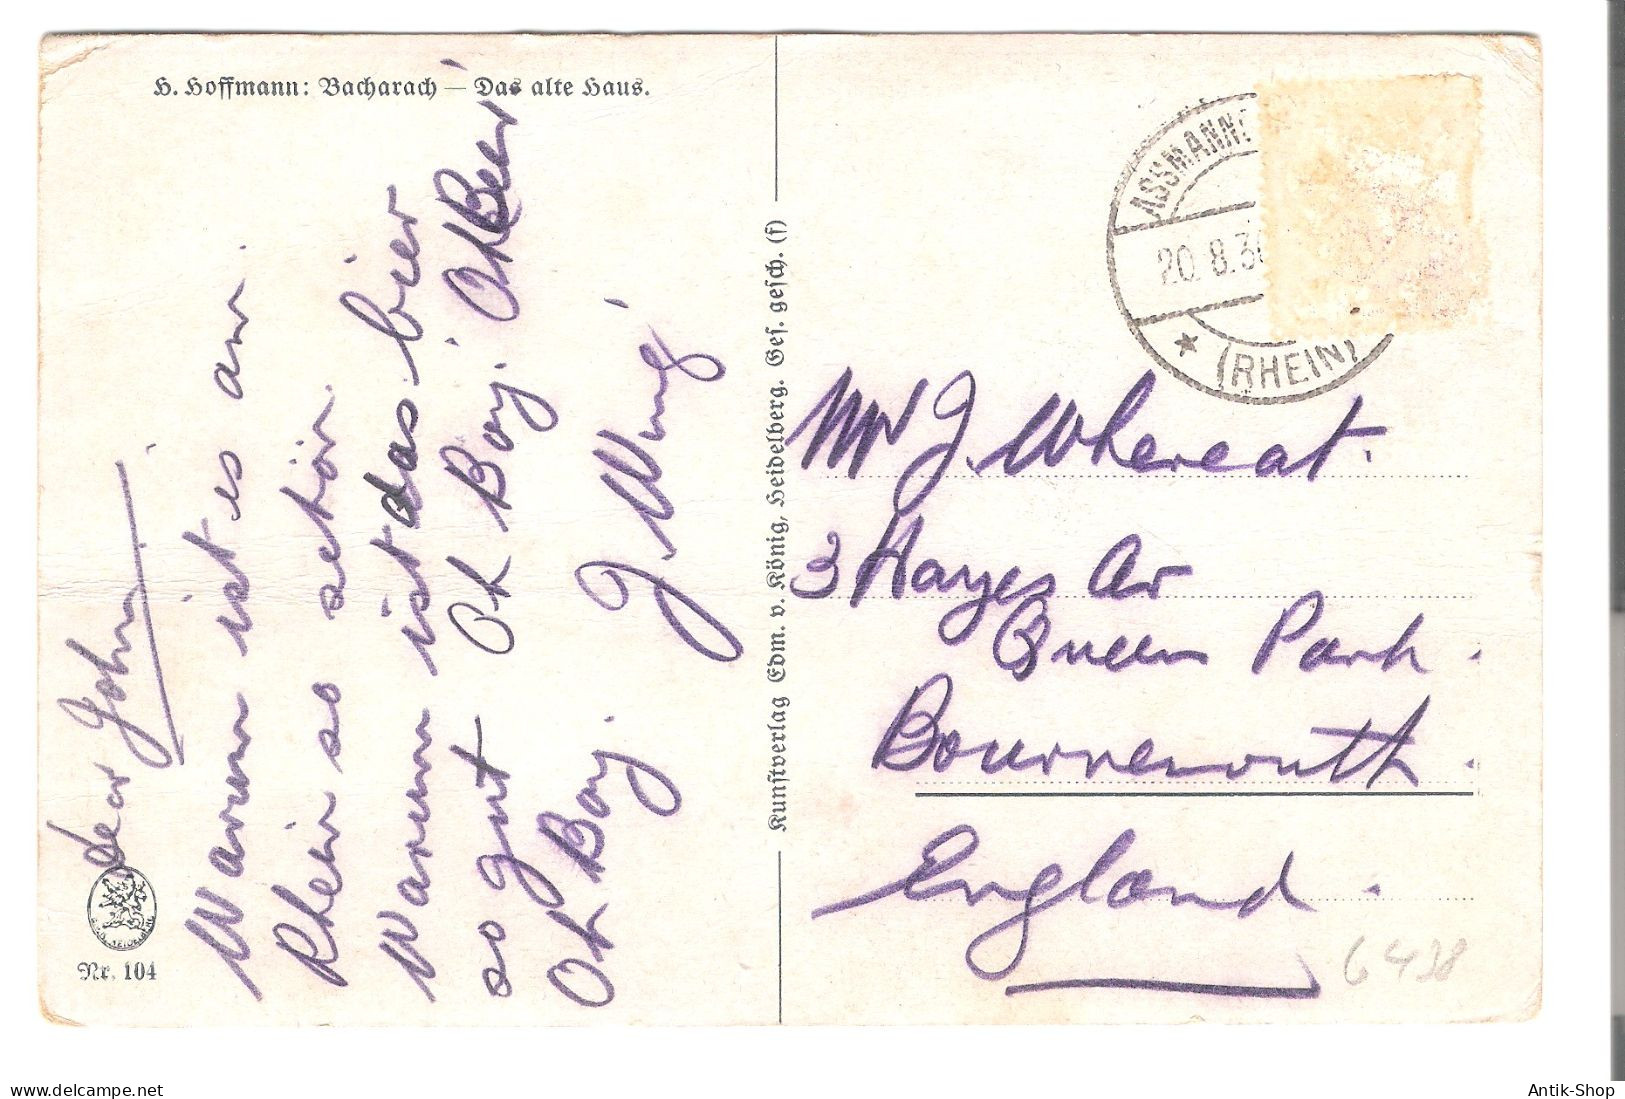 H. Hoffmann: Bacharach — Das alte Haus.
dear John,
Warum ist es am
Rhein so schön.
Warum ist das bier
so gut Oh Boy! Oh Beer!
Oh Boy.
J. Wing
Nr. 104
Kunstverlag Edm. v. König, Heidelberg. Ges. gesch. (f)
ASSMANN
20.8.3
(RHEIN)
Mr J. Whereat.
3 Hayes Av
Queen Park.
Bournemouth.
England.
6438
www.delcampe.net
Antik-Shop